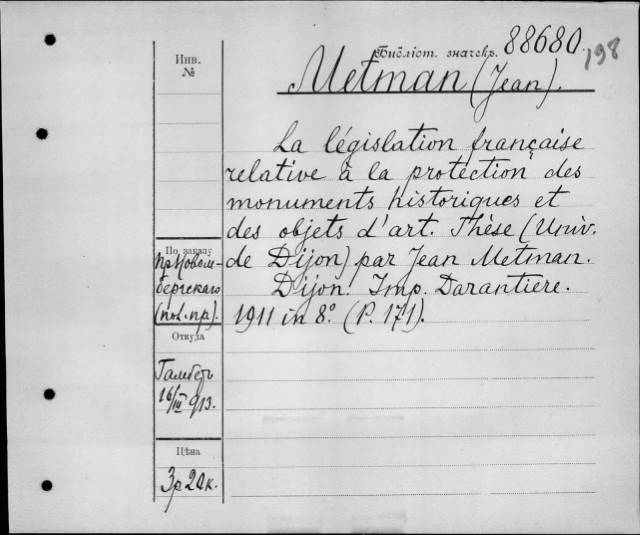 88680
198
Библіот. значекъ.
Инв.
№
Metman (Jean).
La législation française
relative à la protection des
monuments historiques et
des objets d'art. Thèse (Univ.
de Dijon) par Jean Metman.
Dijon. Imp. Darantiere.
1911 in 8º. (P. 171).
По заказу
пр. Новом-
бергскаго
(пол. пр).
Откуда
Гамберъ
16/III 913.
Цѣна
3р 20к.